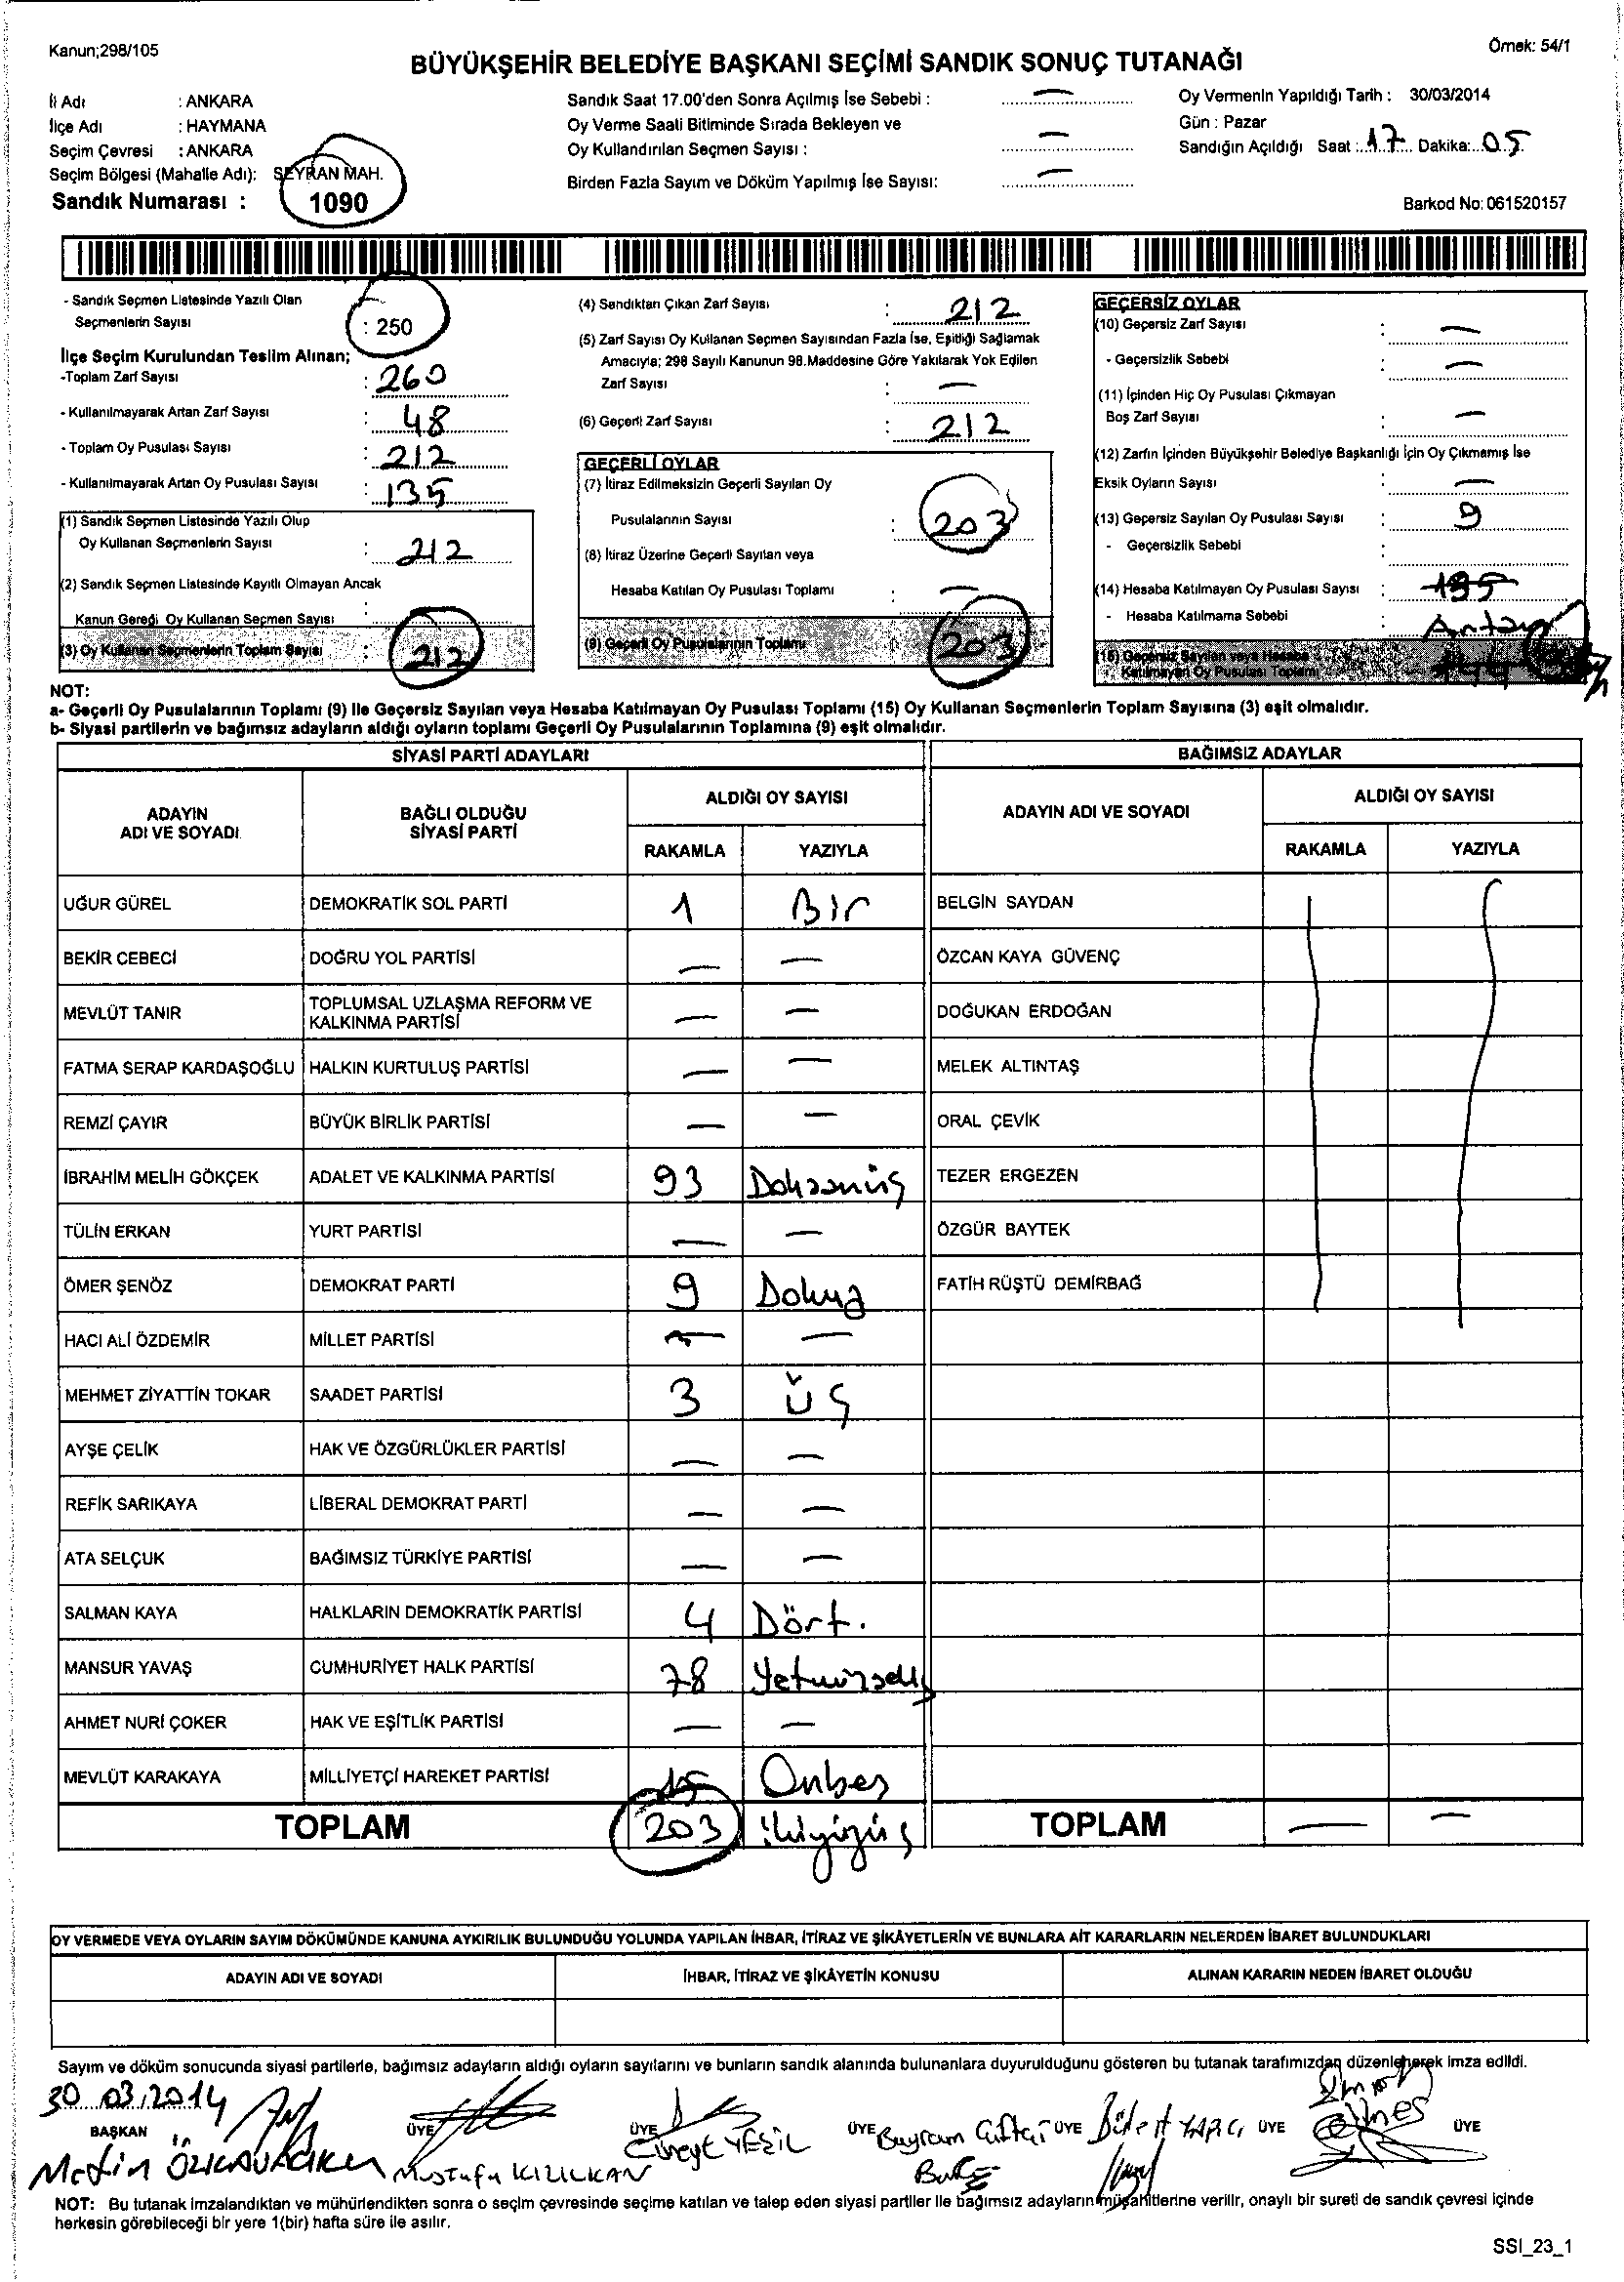 Kanun;298/105
Örnek: 54/1
BÜYÜKŞEHİR BELEDİYE BAŞKANI SEÇİMİ SANDIK SONUÇ TUTANAĞI
İl Adı : ANKARA
İlçe Adı : HAYMANA
Seçim Çevresi : ANKARA
Seçim Bölgesi (Mahalle Adı): SEYRAN MAH.
Sandık Numarası : 1090
Sandık Saat 17.00'den Sonra Açılmış İse Sebebi : —
Oy Verme Saati Bitiminde Sırada Bekleyen ve
Oy Kullandırılan Seçmen Sayısı : —
Birden Fazla Sayım ve Döküm Yapılmış İse Sayısı: —
Oy Vermenin Yapıldığı Tarih : 30/03/2014
Gün : Pazar
Sandığın Açıldığı Saat : 17 Dakika: 05
Barkod No: 061520157
- Sandık Seçmen Listesinde Yazılı Olan
Seçmenlerin Sayısı : 250
İlçe Seçim Kurulundan Teslim Alınan;
-Toplam Zarf Sayısı : 260
- Kullanılmayarak Artan Zarf Sayısı : 48
- Toplam Oy Pusulası Sayısı : 212
- Kullanılmayarak Artan Oy Pusulası Sayısı : 135
(1) Sandık Seçmen Listesinde Yazılı Olup
Oy Kullanan Seçmenlerin Sayısı : 212
(2) Sandık Seçmen Listesinde Kayıtlı Olmayan Ancak
Kanun Gereği Oy Kullanan Seçmen Sayısı :
(3) Oy Kullanan Seçmenlerin Toplam Sayısı : 212
(4) Sandıktan Çıkan Zarf Sayısı : 212
(5) Zarf Sayısı Oy Kullanan Seçmen Sayısından Fazla İse, Eşitliği Sağlamak
Amacıyla; 298 Sayılı Kanunun 98.Maddesine Göre Yakılarak Yok Edilen
Zarf Sayısı : —
(6) Geçerli Zarf Sayısı : 212
GEÇERLİ OYLAR
(7) İtiraz Edilmeksizin Geçerli Sayılan Oy
Pusulalarının Sayısı : 203
(8) İtiraz Üzerine Geçerli Sayılan veya
Hesaba Katılan Oy Pusulası Toplamı : —
(9) Geçerli Oy Pusulalarının Toplamı 203
GEÇERSİZ OYLAR
(10) Geçersiz Zarf Sayısı : —
- Geçersizlik Sebebi : —
(11) İçinden Hiç Oy Pusulası Çıkmayan
Boş Zarf Sayısı : —
(12) Zarfın İçinden Büyükşehir Belediye Başkanlığı İçin Oy Çıkmamış İse
Eksik Oyların Sayısı : —
(13) Geçersiz Sayılan Oy Pusulası Sayısı : 9
- Geçersizlik Sebebi :
(14) Hesaba Katılmayan Oy Pusulası Sayısı : 135
- Hesaba Katılmama Sebebi : Artan
(15) Geçersiz Sayılan veya Hesaba
Katılmayan Oy Pusulası Toplamı
NOT:
a- Geçerli Oy Pusulalarının Toplamı (9) ile Geçersiz Sayılan veya Hesaba Katılmayan Oy Pusulası Toplamı (15) Oy Kullanan Seçmenlerin Toplam Sayısına (3) eşit olmalıdır.
b- Siyasi partilerin ve bağımsız adayların aldığı oyların toplamı Geçerli Oy Pusulalarının Toplamına (9) eşit olmalıdır.
SİYASİ PARTİ ADAYLARI
ADAYIN ADI VE SOYADI
BAĞLI OLDUĞU SİYASİ PARTİ
ALDIĞI OY SAYISI
RAKAMLA YAZIYLA
UĞUR GÜREL DEMOKRATİK SOL PARTİ 1 Bir
BEKİR CEBECİ DOĞRU YOL PARTİSİ — —
MEVLÜT TANIR TOPLUMSAL UZLAŞMA REFORM VE KALKINMA PARTİSİ — —
FATMA SERAP KARDAŞOĞLU HALKIN KURTULUŞ PARTİSİ — —
REMZİ ÇAYIR BÜYÜK BİRLİK PARTİSİ — —
İBRAHİM MELİH GÖKÇEK ADALET VE KALKINMA PARTİSİ 93 Doksanüç
TÜLİN ERKAN YURT PARTİSİ — —
ÖMER ŞENÖZ DEMOKRAT PARTİ 9 Dokuz
HACI ALİ ÖZDEMİR MİLLET PARTİSİ — —
MEHMET ZİYATTİN TOKAR SAADET PARTİSİ 3 üç
AYŞE ÇELİK HAK VE ÖZGÜRLÜKLER PARTİSİ — —
REFİK SARIKAYA LİBERAL DEMOKRAT PARTİ — —
ATA SELÇUK BAĞIMSIZ TÜRKİYE PARTİSİ — —
SALMAN KAYA HALKLARIN DEMOKRATİK PARTİSİ 4 Dört.
MANSUR YAVAŞ CUMHURİYET HALK PARTİSİ 78 Yetmişsekiz
AHMET NURİ ÇOKER HAK VE EŞİTLİK PARTİSİ — —
MEVLÜT KARAKAYA MİLLİYETÇİ HAREKET PARTİSİ 15 Onbeş
TOPLAM 203 ikiyüzüç
BAĞIMSIZ ADAYLAR
ADAYIN ADI VE SOYADI
ALDIĞI OY SAYISI
RAKAMLA YAZIYLA
BELGİN SAYDAN
ÖZCAN KAYA GÜVENÇ
DOĞUKAN ERDOĞAN
MELEK ALTINTAŞ
ORAL ÇEVİK
TEZER ERGEZEN
ÖZGÜR BAYTEK
FATİH RÜŞTÜ DEMİRBAĞ
TOPLAM — —
OY VERMEDE VEYA OYLARIN SAYIM DÖKÜMÜNDE KANUNA AYKIRILIK BULUNDUĞU YOLUNDA YAPILAN İHBAR, İTİRAZ VE ŞİKÂYETLERİN VE BUNLARA AİT KARARLARIN NELERDEN İBARET BULUNDUKLARI
ADAYIN ADI VE SOYADI İHBAR, İTİRAZ VE ŞİKÂYETİN KONUSU ALINAN KARARIN NEDEN İBARET OLDUĞU
Sayım ve döküm sonucunda siyasi partilerle, bağımsız adayların aldığı oyların sayılarını ve bunların sandık alanında bulunanlara duyurulduğunu gösteren bu tutanak tarafımızdan düzenlenerek imza edildi.
30.03.2014
BAŞKAN ÜYE ÜYE ÜYE ÜYE ÜYE ÜYE
Metin Mustafa KIZILKAN Cüneyt YEŞİL Bayram Çiftçi Bülent YAPICI
NOT: Bu tutanak imzalandıktan ve mühürlendikten sonra o seçim çevresinde seçime katılan ve talep eden siyasi partiler ile bağımsız adayların müşahitlerine verilir, onaylı bir sureti de sandık çevresi içinde
herkesin görebileceği bir yere 1(bir) hafta süre ile asılır.
SSI_23_1